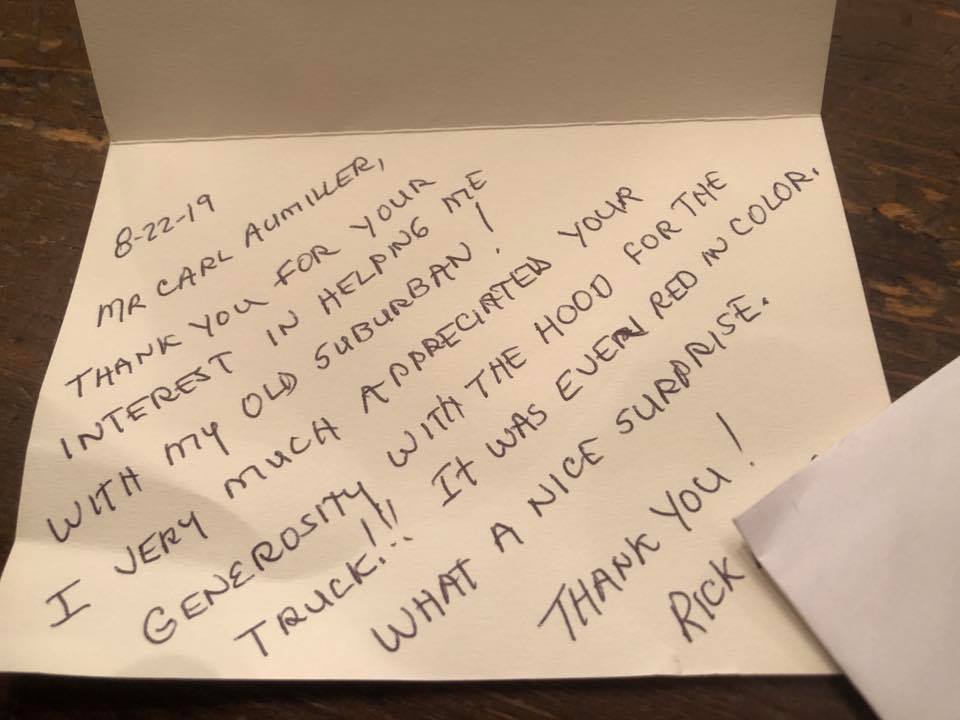 8-22-19
MR CARL AUMILLER,
THANK YOU FOR YOUR
INTEREST IN HELPING ME
WITH MY OLD SUBURBAN!
I VERY MUCH APPRECIATED YOUR
GENEROSITY WITH THE HOOD FOR THE
TRUCK!!! IT WAS EVEN RED IN COLOR.
WHAT A NICE SURPRISE.
THANK YOU!
RICK